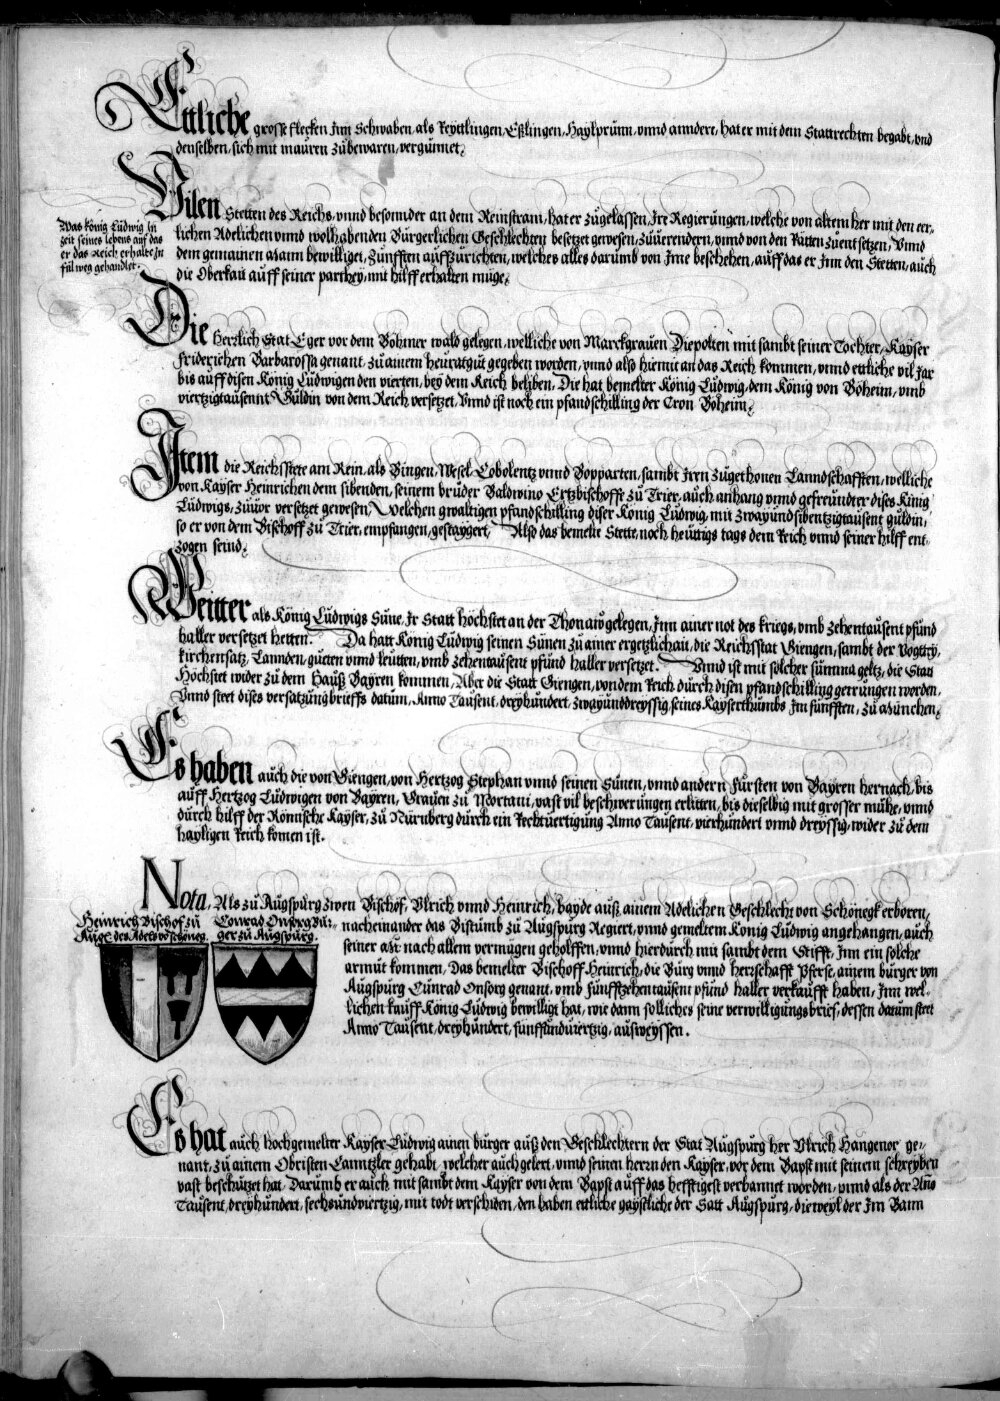 Ettliche grosse flecken Jnn Schwaben, als Reyttlingen, Eßlingen, Haylprunn, vnnd anndere, hat er mit dem Stattrechten begabt, vnd
denselben, sich mit mauren zubewaren, vergunnet.
Vilen Stetten des Reichs, vnnd besonnder an dem Reinstram, hat er zugelassen, Jre Regierungen, welche von altem her mit den eer„
lichen Adelichen vnnd wolhabenden Burgerlichen Geschlechten besetzet gewesen, zuuerendern, vnnd von den Räten zuentsetzen, Vnnd
dem gemainen Mann bewilliget, Zunfften auffzurichten, welches alles darumb von Jme beschehen, auff das er Jnn den Stetten, auch
die Oberkait auff seiner parthey, mit hilff erhalten müge.
Was König Ludwig In
zeit seines lebens auf das
er das Reich erhalte In
fül weg gehandlet.
Die Herrlich Stat Eger vor dem Böhmer wald gelegen, welliche von Marckgrauen Diepolten mit sambt seiner Tochter, Kayser
Friderichen Barbarossa genant, zu ainem heuratgut gegeben worden, vnnd also hiemit an das Reich kommen, vnnd ettliche vil Jar
bis auff disen König Ludwigen den vierten, bey dem Reich beliben, Die hat bemelter König Ludwig, dem König von Böheim, vmb
viertzigtausennt Guldin von dem Reich versetzet, Vnnd ist noch ein pfandschilling der Cron Böheim.
Jtem die Reichsstete am Rein, als Bingen, Wesel, Cobolentz vnnd Bopparten, sambt Jren zugethonen Lanndschafften, welliche
von Kayser Heinrichen dem sibenden, seinem bruder Baldwino Ertzbischoffe zu Trier, auch anhang vnnd gefreundter dises König
Ludwigs, zuuor versetzet gewesen, Welchen gwaltigen pfandschilling diser König Ludwig, mit zwayundsibentzigtausent guldin,
so er von dem Bischoff zu Trier, empfangen, gestaygert, Also das bemelte Stette, noch heuttigs tags dem Reich vnnd seiner hilff ent„
zogen seind.
Weitter als König Ludwigs Süne, Jr Statt Höchstet an der Thonaw gelegen, Jnn ainer not des kriegs, vmb zehentausent pfund
haller versetzet hetten. Da hatt König Ludwig seinen Sünen zu ainer ergetzlichait, die Reichsstat Giengen, sambt der Vogtey,
kirchensatz, Lannden, gueten vnnd leutten, vmb zehentausent pfund haller versetzet. Vnnd ist mit solcher summa geltz, die Stat
Höchstet wider zu dem Hauß Bayren kommen, Aber die Statt Giengen, von dem Reich durch disen pfandschilling getrungen worden,
Vnnd steet dises versatzungbrieffs datum, Anno Tausent, dreyhundert, zwayunddreyssig, seines Kayserthumbs Jm funfften, zu München.
Es haben auch die von Giengen, von Hertzog Stephan vnnd seinen Sünen, vnnd andern Fursten von Bayren hernach, bis
auff Hertzog Ludwigen von Bayren, Grauen zu Mortani, vast vil beschwerungen erlitten, bis dieselbig mit grosser mühe, vnnd
durch hilff der Römische Kayser, zu Nürnberg durch ein Rechtuertigung Anno Tausent, vierhundert vnnd dreyssig, wider zu dem
hayligen Reich komen ist.
Nota, Als zu Augspurg zwen Bischof, Vlrich vnnd Heinrich, bayde auß ainem Adelichen Geschlecht von Schönegk erboren,
nacheinander das Bistumb zu Augspurg Regiert, vnnd gemeltem König Ludwig angehangen, auch
seiner Mt. nach allem vermügen geholffen, vnnd hierdurch mit sambt dem Stifft, Jnn ein solche
armut kommen, Das bemelter Bischoff Heinrich, die Burg vnnd herrschafft Pferse, ainem burger von
Augspurg Cunrad Onsorg genant, vmb Funfftzehentausent pfund haller verkaufft haben, Jnn wel„
lichen kauff König Ludwig bewilligt hat, wie dann solliches seine verwilligungsbrief, dessen datum steet
Anno Tausent, dreyhundert, funffundviertzig, außweyssen.
Heinrich Bischof zu
Augs. des Adels vo schöneg.
Conrad Onsorg Bur„
ger zu Augspurg.
Es hat auch hochgemelter Kayser Ludwig ainen burger auß den Geschlechtern der Stat Augspurg her Vlrich Hangenor ge„
nant, zu ainem Obristen Canntzler gehabt, welcher auch gelert, vnnd seinen herrn den Kayser, vor dem Bapst mit seinem schreyben
vast beschützet hat, Darumb er auch mit sambt dem Kayser von dem Bapst auff das hefftigest verbannet worden, vnnd als der Año
Tausent, dreyhundert, sechsundviertzig, mit todt verschiden, den haben ettliche gaystliche der Satt Augspurg, dieweyl der Jm Bann